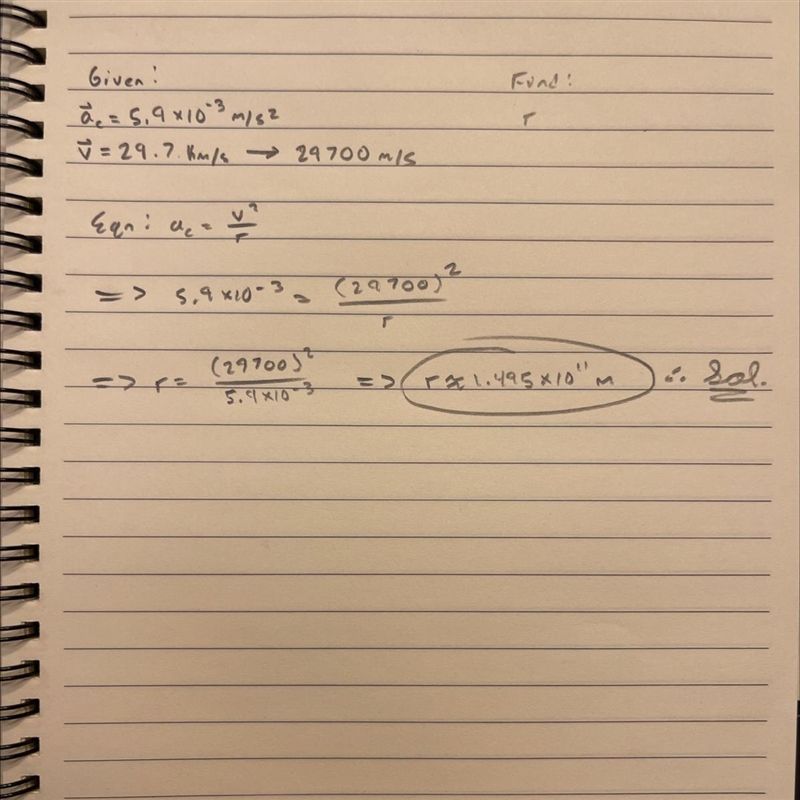 Given: Find:
a⃗c = 5.9 × 10⁻³ m/s² r
v⃗ = 29.7 Km/s → 29700 m/s
Eqn: ac = v²/r
=> 5.9 × 10⁻³ = (29700)²/r
=> r = (29700)²/5.9 × 10⁻³ => r ≈ 1.495 × 10¹¹ m ∴ Sol.